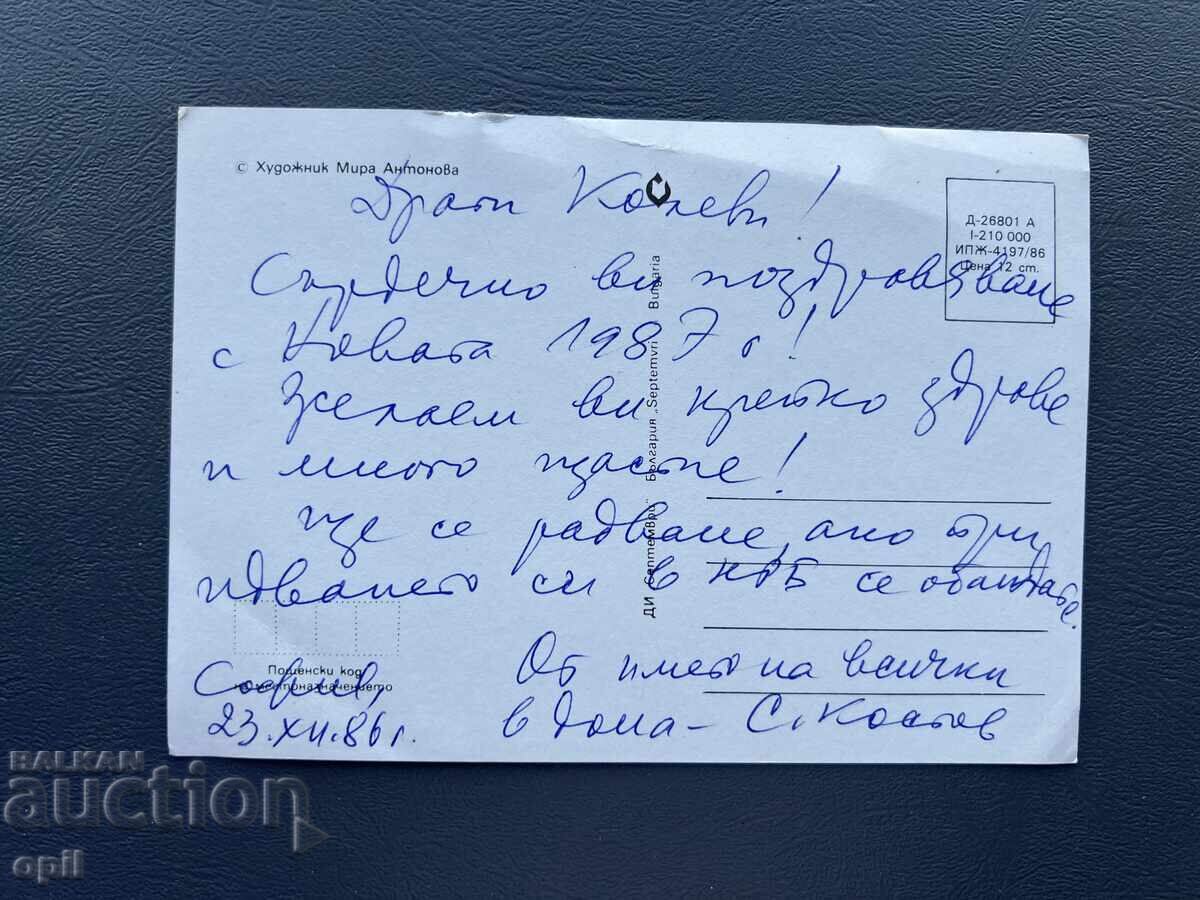 © Художник Мира Антонова
Драги Колеви!
Сърдечно ви поздравяваме
с Новата 1987 г!
Желаем ви крепко здраве
и много щастие!
Ще се радваме, ако при
идването си в НРБ се обаждате.
От името на всички
в дома - С. Костов
София,
23.XII.86 г.
Д-26801 А
I-210 000
ИПЖ-4197/86
Цена 12 ст.
ДИ „Септември" България „Septemvri" Bulgaria
Пощенски код
на местоназначението
BALKAN
auction
opil